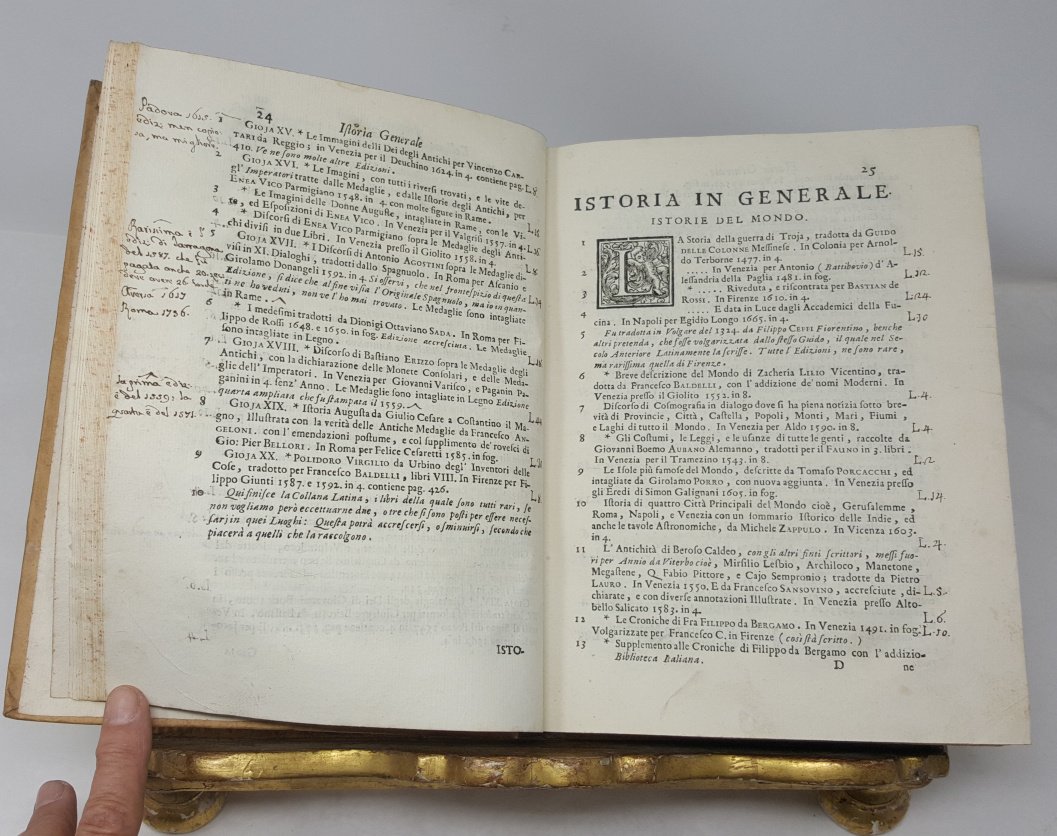 24
Istoria Generale
Padova 1615.
1
GIOJA XV. * Le Immagini delli Dei degli Antichi per Vincenzo CAR-
TARI da Reggio; in Venezia per il Deuchino 1624. in 4. contiene pag.
410. Ve ne sono molte altre Edizioni.
2
GIOJA XVI. * Le Imagini, con tutti i riversi trovati, e le vite de-
gl' Imperatori tratte dalle Medaglie, e dalle Istorie degli Antichi, per
ENEA VICO Parmigiano 1548. in 4. con molte figure in Rame.
3
* Le Imagini delle Donne Auguste, intagliate in Rame, con le Vi-
te, ed Esposizioni di ENEA VICO. In Venezia per il Valgrisi 1557. in 4.
4
* Discorsi di ENEA VICO Parmigiano sopra le Medaglie degli Anti-
chi divisi in due Libri. In Venezia presso il Giolito 1558. in 4.
5
GIOJA XVII. * I Discorsi di Antonio AGOSTINI sopra le Medaglie di-
visi in XI. Dialoghi, tradotti dallo Spagnuolo. In Roma per Ascanio e
Girolamo Donangeli 1592. in 4. Si osservi, che nel frontespizio di questa
Edizione, si dice che al fine vi sia l'Originale Spagnuolo, ma io in quan-
ti ne ho veduti, non ve l'ho mai trovato. Le Medaglie sono intagliate
in Rame.
Roma 1736.
6
* I medesimi tradotti da Dionigi Ottaviano SADA. In Roma per Fi-
lippo de Rossi 1648. e 1650. in fog. Edizione accresciuta. Le Medaglie
sono intagliate in Legno.
7
GIOJA XVIII. * Discorso di Bastiano ERIZZO sopra le Medaglie degli
Antichi, con la dichiarazione delle Monete Consolari, e delle Meda-
glie dell' Imperatori. In Venezia per Giovanni Varisco, e Paganin Pa-
ganini in 4. senz' Anno. Le Medaglie sono intagliate in Legno Edizione
quarta ampliata che fu stampata il 1559.
8
GIOJA XIX. * Istoria Augusta da Giulio Cesare a Costantino il Ma-
gno, Illustrata con la verità delle Antiche Medaglie da Francesco AN-
GELONI. con l'emendazioni postume, e col supplimento de' rovesci di
Gio: Pier BELLORI. In Roma per Felice Cesaretti 1585. in fog.
9
GIOJA XX. * POLIDORO VIRGILIO da Urbino degl' Inventori delle
Cose, tradotto per Francesco BALDELLI, libri VIII. In Firenze per Fi-
lippo Giunti 1587. e 1592. in 4. contiene pag. 426.
10
Qui finisce la Collana Latina, i libri della quale sono tutti rari, se
non vogliamo però eccettuarne due, o tre che si sono posti per essere neces-
sarj in quei Luoghi: Questa potrà accrescersi, o sminuirsi, secondo che
piacerà a quelli che la raccolgono.
ISTO-
25
ISTORIA IN GENERALE.
ISTORIE DEL MONDO.
1 LA Storia della guerra di Troja, tradotta da GUIDO
DELLE COLONNE Messinese. In Colonia per Arnol-
do Terborne 1477. in 4. L.15.
2 ..... In Venezia per Antonio (Battibovio) d'A-
lessandria della Paglia 1481. in fog. L.12.
3 * ..... Riveduta, e riscontrata per BASTIAN de
ROSSI. In Firenze 1610. in 4. L.24.
4 ..... E data in Luce dagli Accademici della Fu-
cina. In Napoli per Egidio Longo 1665. in 4. L.10
5 Fu tradotta in Volgare del 1324. da Filippo CEFFI Fiorentino, benche
altri pretenda, che fosse volgarizzata dallo stesso Guido, il quale nel Se-
colo Anteriore Latinamente la scrisse. Tutte l'Edizioni, ne sono rare,
ma rarissima quella di Firenze.
6 * Breve descrizione del Mondo di Zacheria LILIO Vicentino, tra-
dotta da Francesco BALDELLI, con l'addizione de' nomi Moderni. In
Venezia presso il Giolito 1552. in 8. L.4.
7 Discorso di Cosmografia in dialogo dove si ha piena notizia sotto bre-
vità di Provincie, Città, Castella, Popoli, Monti, Mari, Fiumi,
e Laghi di tutto il Mondo. In Venezia per Aldo 1590. in 8. L.4.
8 * Gli Costumi, le Leggi, e le usanze di tutte le genti, raccolte da
Giovanni Boemo AUBANO Alemanno, tradotti per il FAUNO in 3. libri.
In Venezia per il Tramezino 1543. in 8. L.2.
9 Le Isole più famose del Mondo, descritte da Tomaso PORCACCHI, ed
intagliate da Girolamo PORRO, con nuova aggiunta. In Venezia presso
gli Eredi di Simon Galignani 1605. in fog. L.14.
10 Istoria di quattro Città Principali del Mondo cioè, Gerusalemme,
Roma, Napoli, e Venezia con un sommario Istorico delle Indie, ed
anche le tavole Astronomiche, da Michele ZAPPULO. In Vicenza 1603.
in 4. L.7.
11 L'Antichità di Beroso Caldeo, con gli altri finti scrittori, messi fuo-
ri per Annio da Viterbo cioè, Mirsilio Lesbio, Archiloco, Manetone,
Megastene, Q. Fabio Pittore, e Cajo Sempronio; tradotte da Pietro
LAURO. In Venezia 1550. E da Francesco SANSOVINO, accresciute, di- L.8.
chiarate, e con diverse annotazioni Illustrate. In Venezia presso Alto-
bello Salicato 1583. in 4. L.6.
12 * Le Croniche di Fra FILIPPO da BERGAMO. In Venezia 1491. in fog. L.10.
Volgarizzate per Francesco C. in Firenze (così stà scritto.)
13 * Supplemento alle Croniche di Filippo da Bergamo con l'addizio-
Biblioteca Italiana. D ne